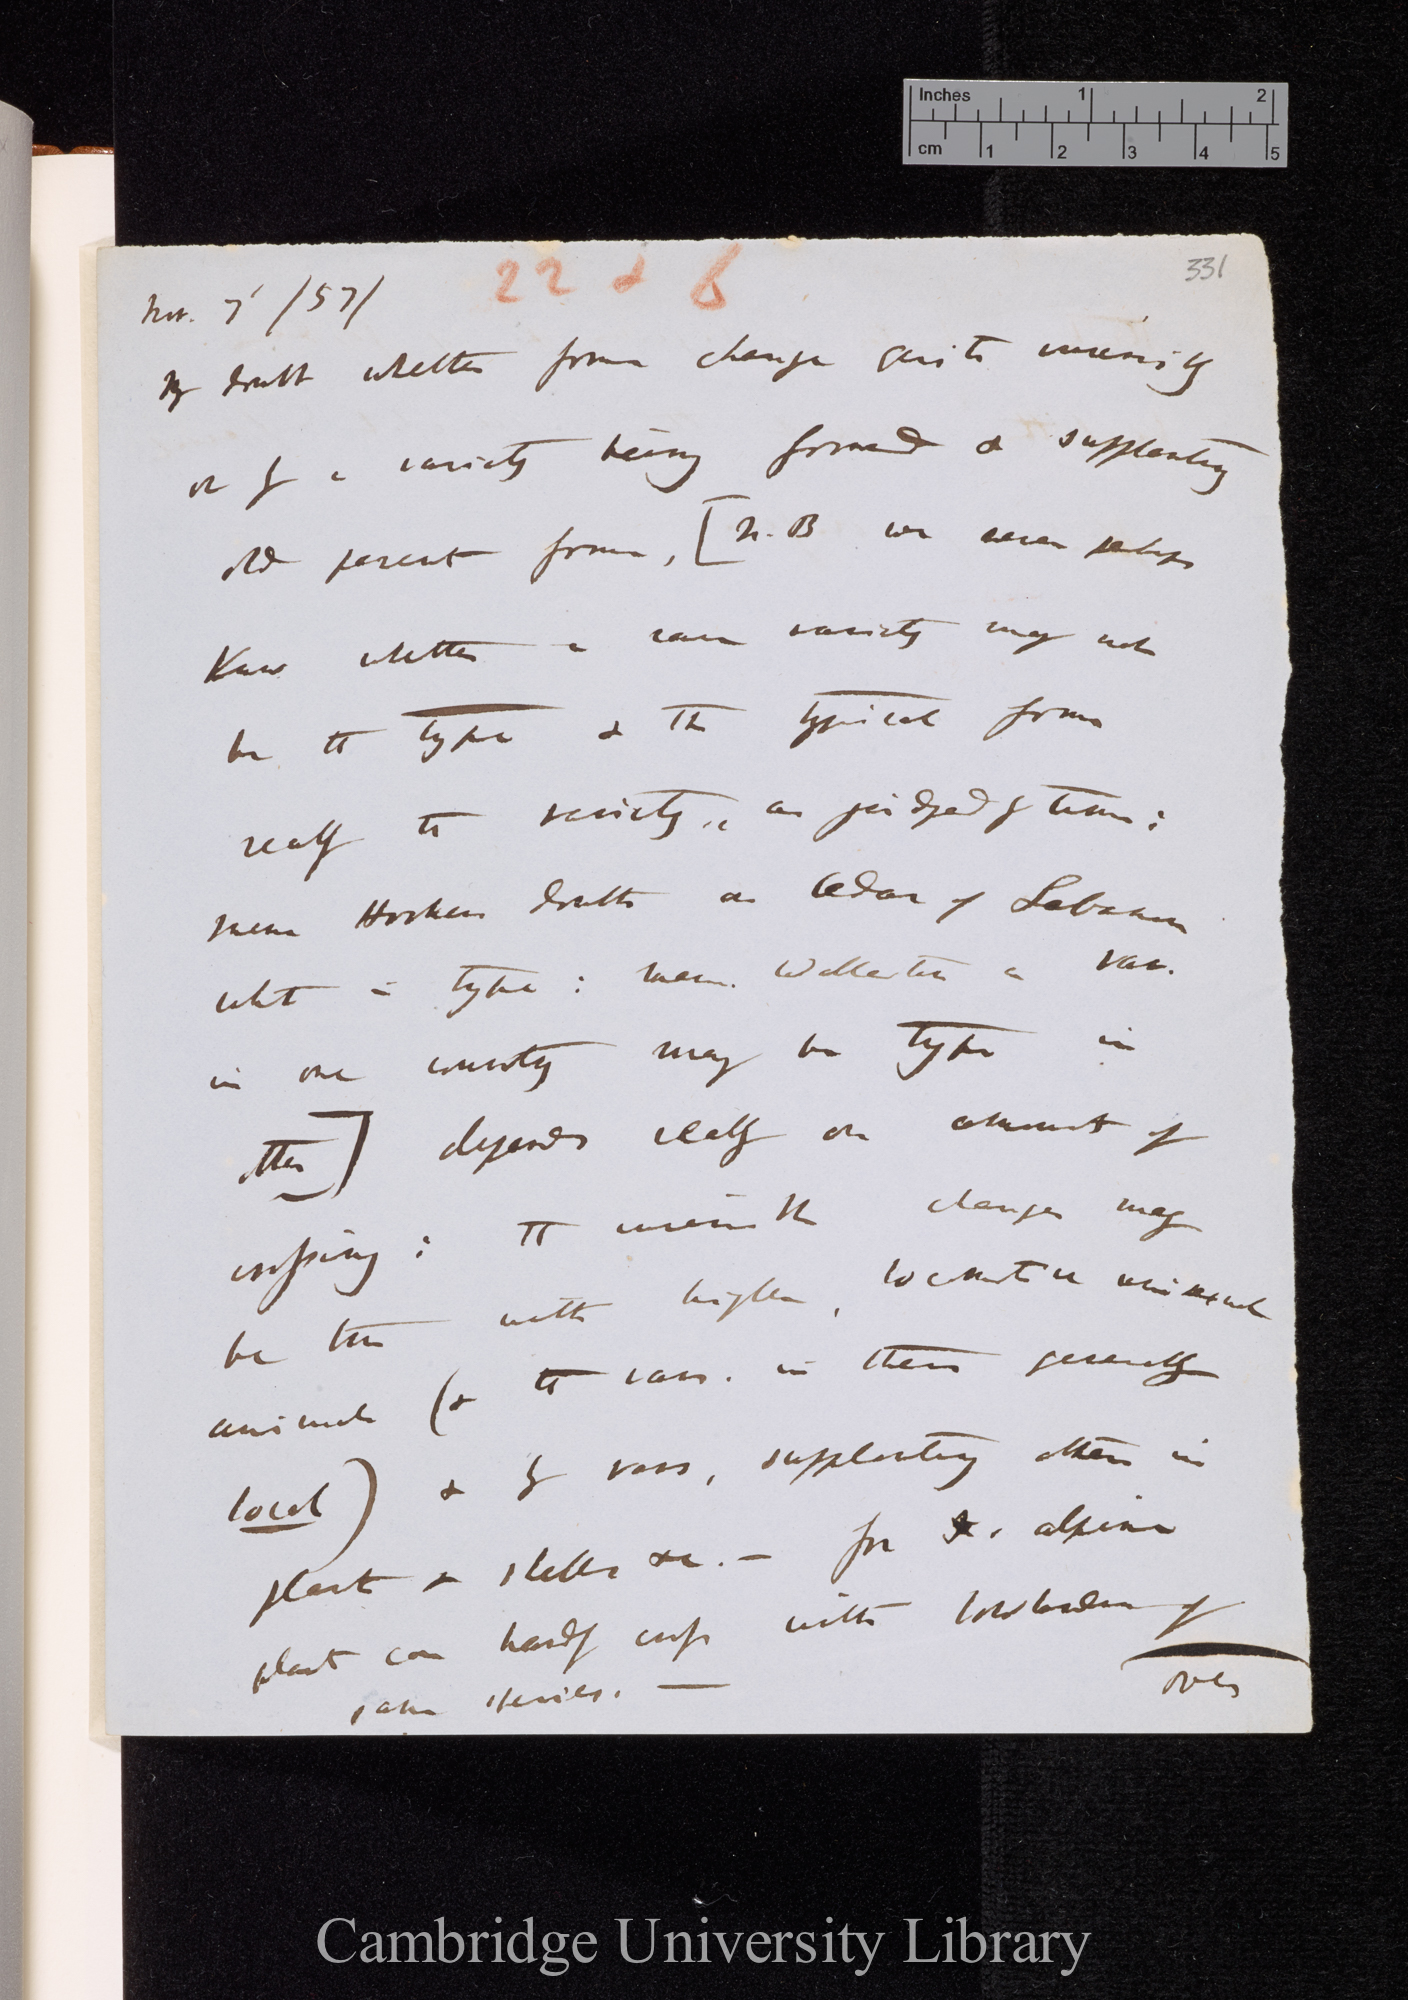 Inches 1 2
cm 1 2 3 4 5
331
22 & 6
Nov. 7' /57/
My doubt whether forms change quite insensibly
or by a variety being formed & supplanting
old parent form, [N.B we never perhaps
know whether a rare variety may not
be the type & the typical form
really the variety, as judged by time;
mem Hookers doubts on Cedar of Lebanon
what is type: mem. Wollaston a var.
in one country may be type in
other] depends really on amount of
crossing; the insensible changes may
be true with higher, locomotive unisexual
animals (& the vars. in them generally
local) & by vars, supplanting others in
plants & shells &c. — for alpine
plant can hardly cross with lowlander of
same species. —
over
Cambridge University Library